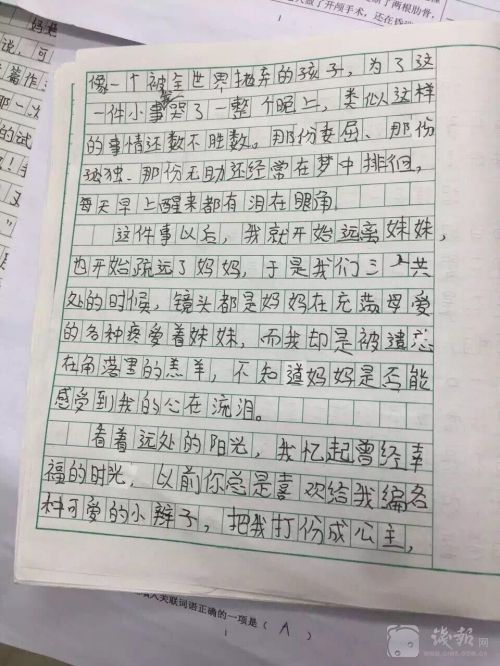 了两根肋骨，
了开颅手术，还在昏
1
妈
说，可
篇作
那一次
的试
又
像一个被全世界抛弃的孩子，为了这
一件小事哭了一整个晚上，类似这样
的事情还数不胜数。那份委屈、那份
孤独、那份无助还经常在梦中排徊，
每天早上醒来都有泪在眼角。
这件事以后，我就开始远离妹妹，
也开始疏远了妈妈，于是我们三人共
处的时候，镜头都是妈妈在充满母爱
的各种疼爱着妹妹，而我却是被遗忘
在角落里的羔羊，不知道妈妈是否能
感受到我的心在流泪。
看着远处的阳光，我忆起曾经幸
福的时光，以前你总是喜欢给我编各
种可爱的小辫子，把我打份成公主，
入关联词语正确的一项是（ A ）
1
钱报网